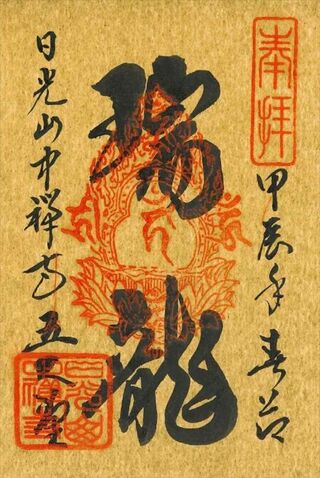 奉拝
甲辰年 春節
瑞龍
日光山中禅寺 五大堂